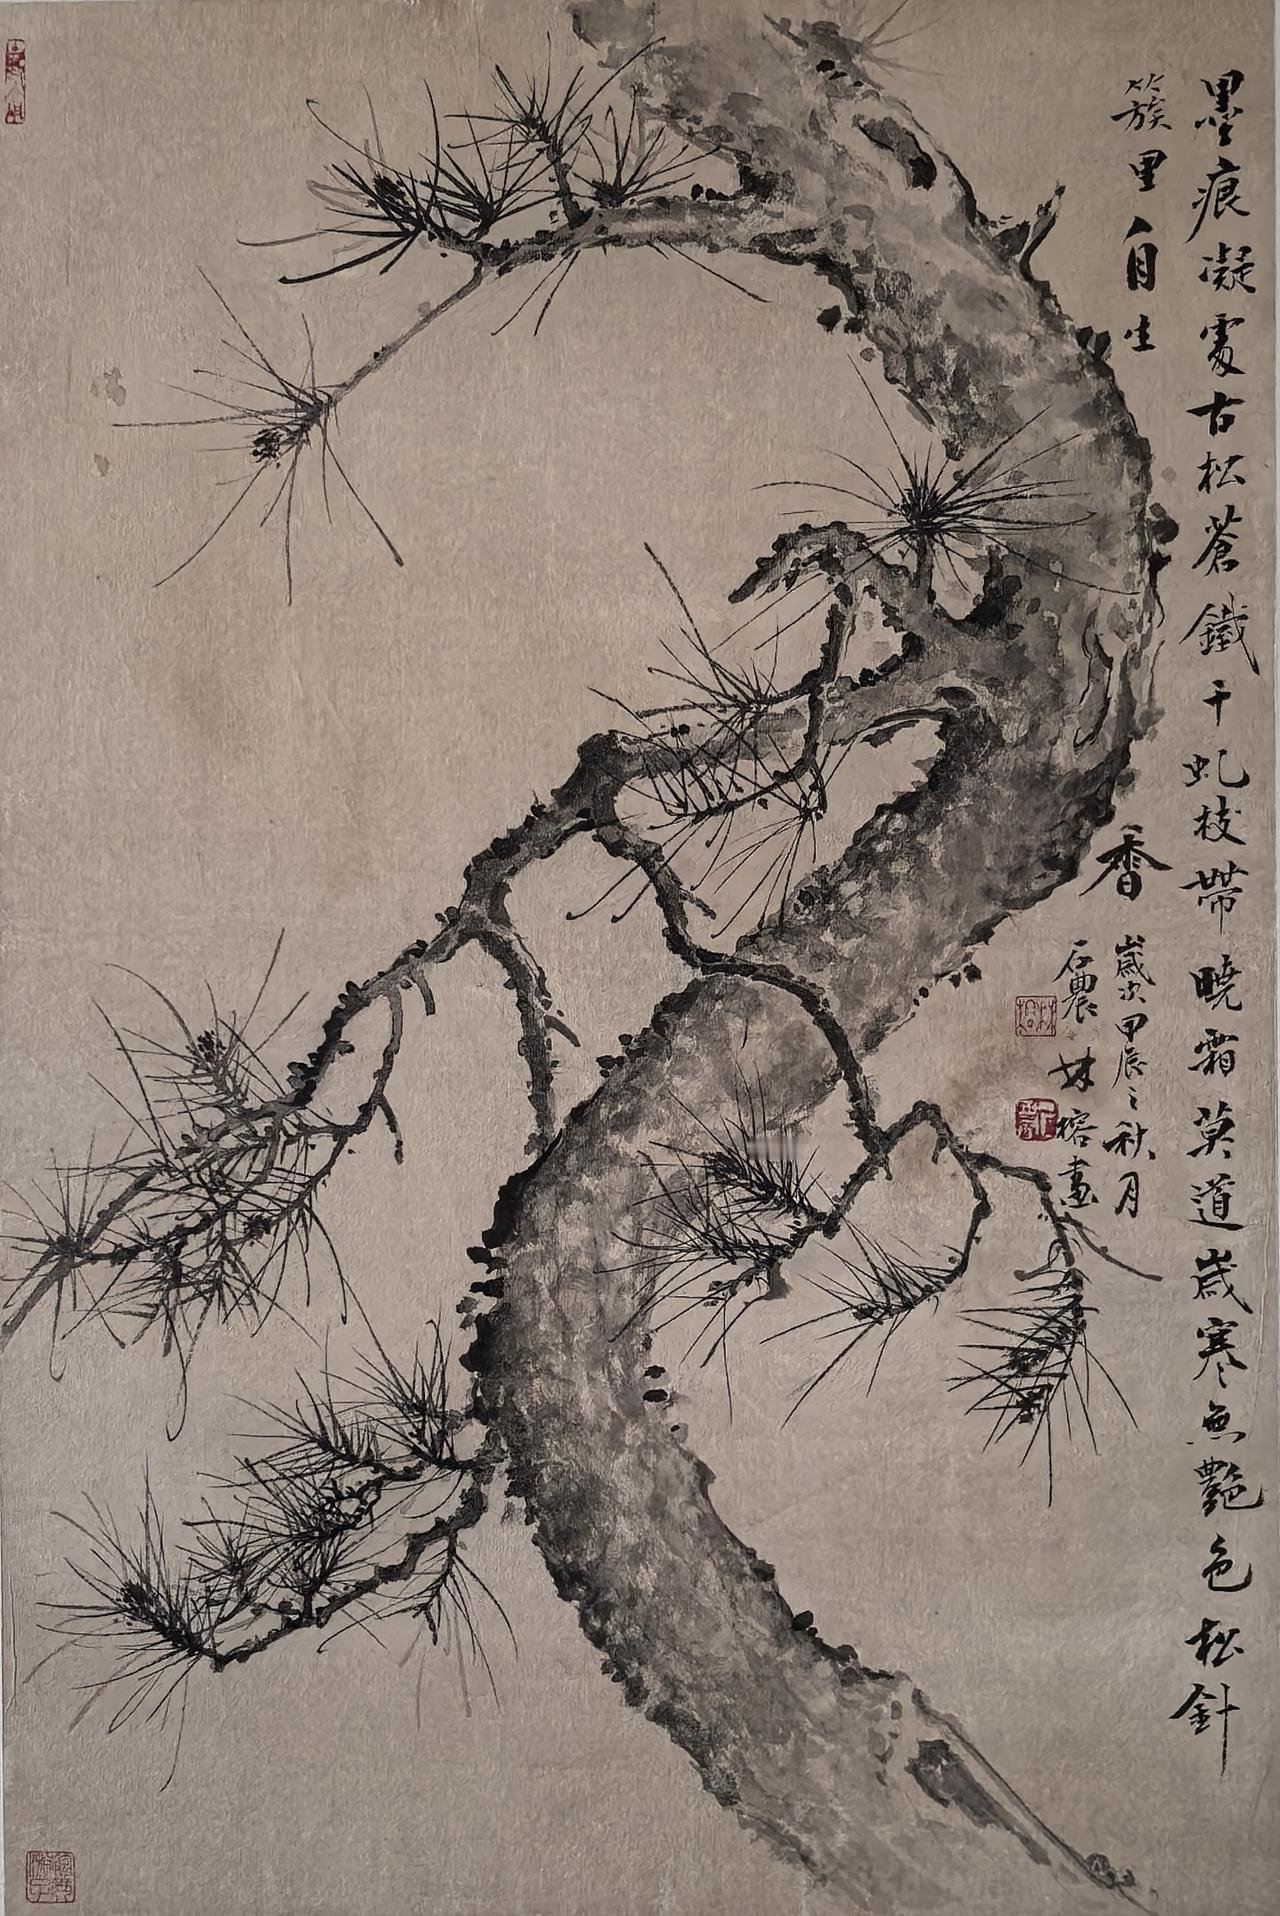 墨痕凝處古松蒼鐵干虬枝帶曉霜莫道歲寒無艷色松針
簇里自生香
歲次甲辰之秋月
石農林榕畫